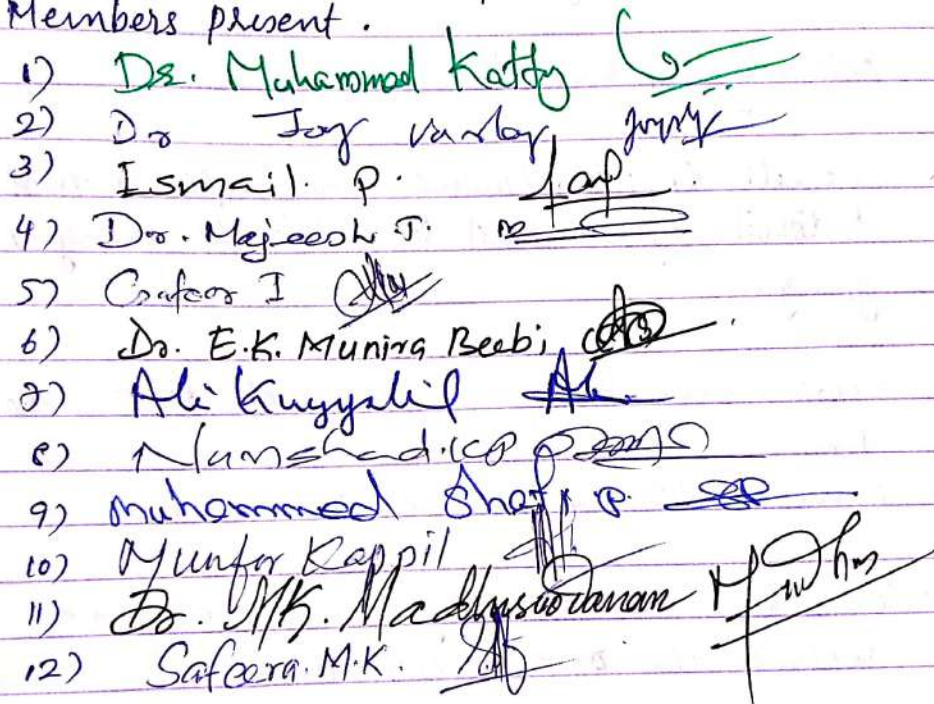 Members present.
1) Dr. Muhammad Katty
2) Dr Joy varley
3) Ismail. P.
4) Dr. Majeesh T.
5) Gafoor I
6) Dr. E.K. Munira Beebi
7) Ali Kuyyalil
8) Namshad.KP
9) muhammed Shafi P.
10) Munfar Kappil
11) Dr. M.K. Madhusoodanan
12) Safeera.M.K.